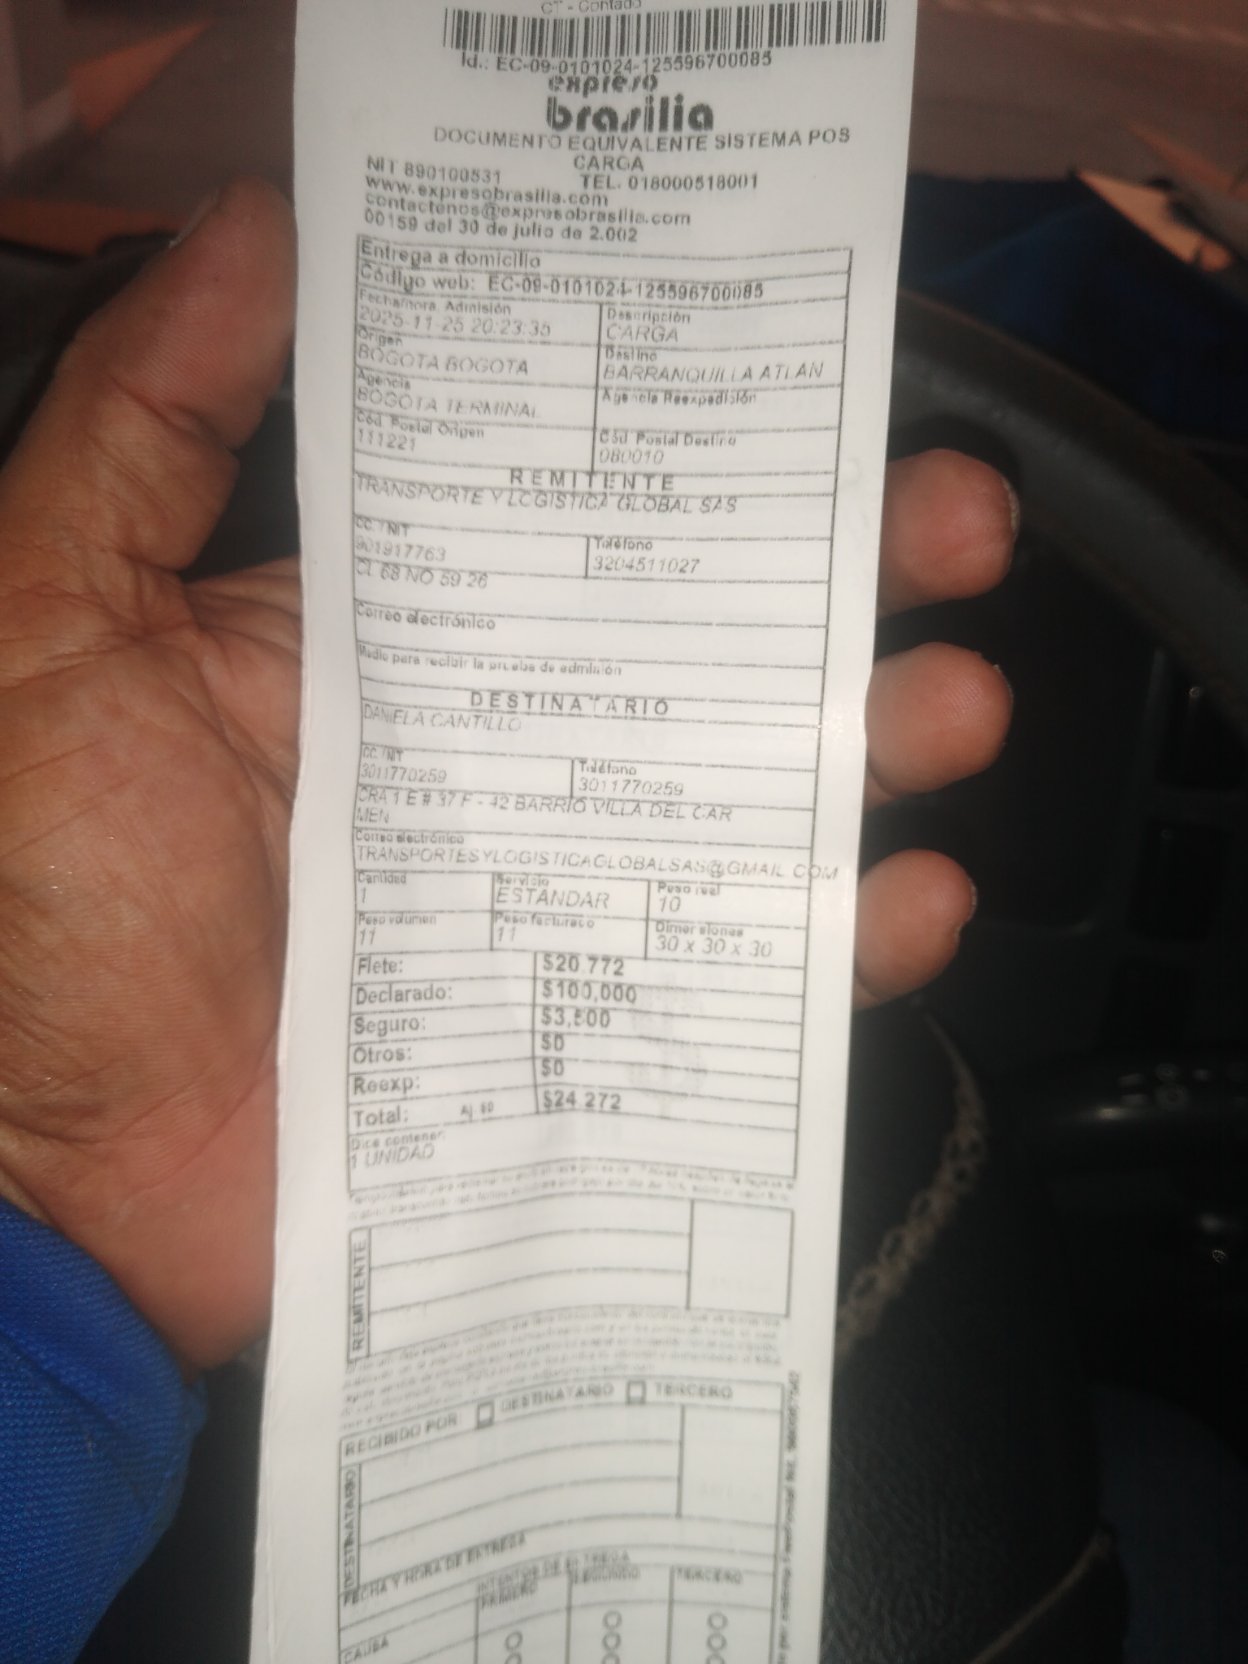 CT - Contado
Id.: EC-09-0101024-125596700085
expreso
brasilia
DOCUMENTO EQUIVALENTE SISTEMA POS
CARGA
NIT 890100531 TEL. 018000518001
www.expresobrasilia.com
contactenos@expresobrasilia.com
00159 del 30 de julio de 2.002
Entrega a domicilio
Código web: EC-09-0101024-125596700085
Fecha/hora. Admisión Descripción
2025-11-25 20:23:35 CARGA
Origen Destino
BOGOTA BOGOTA BARRANQUILLA ATLAN
Agencia Agencia Reexpedición
BOGOTA TERMINAL
Cód. Postal Origen Cód. Postal Destino
111221 080010
REMITENTE
TRANSPORTE Y LOGISTICA GLOBAL SAS
CC. / NIT Teléfono
901917763 3204511027
CL 68 NO 59 26
Correo electrónico
Medio para recibir la prueba de admisión
DESTINATARIO
DANIELA CANTILLO
CC. / NIT Teléfono
3011770259 3011770259
CRA 1 E # 37 F - 42 BARRIO VILLA DEL CAR
MEN
Correo electrónico
TRANSPORTESYLOGISTICAGLOBALSAS@GMAIL.COM
Cantidad Servicio Peso real
1 ESTANDAR 10
Peso volumen Peso facturado Dimensiones
11 11 30 x 30 x 30
Flete: $20.772
Declarado: $100,000
Seguro: $3,500
Otros: $0
Reexp: $0
Total: Aj. $0 $24.272
Dice contener:
1 UNIDAD
REMITENTE
RECIBIDO POR DESTINATARIO TERCERO
DESTINATARIO
FECHA Y HORA DE ENTREGA
INTENTOS DE ENTREGA
PRIMERO SEGUNDO TERCERO
CAUSA